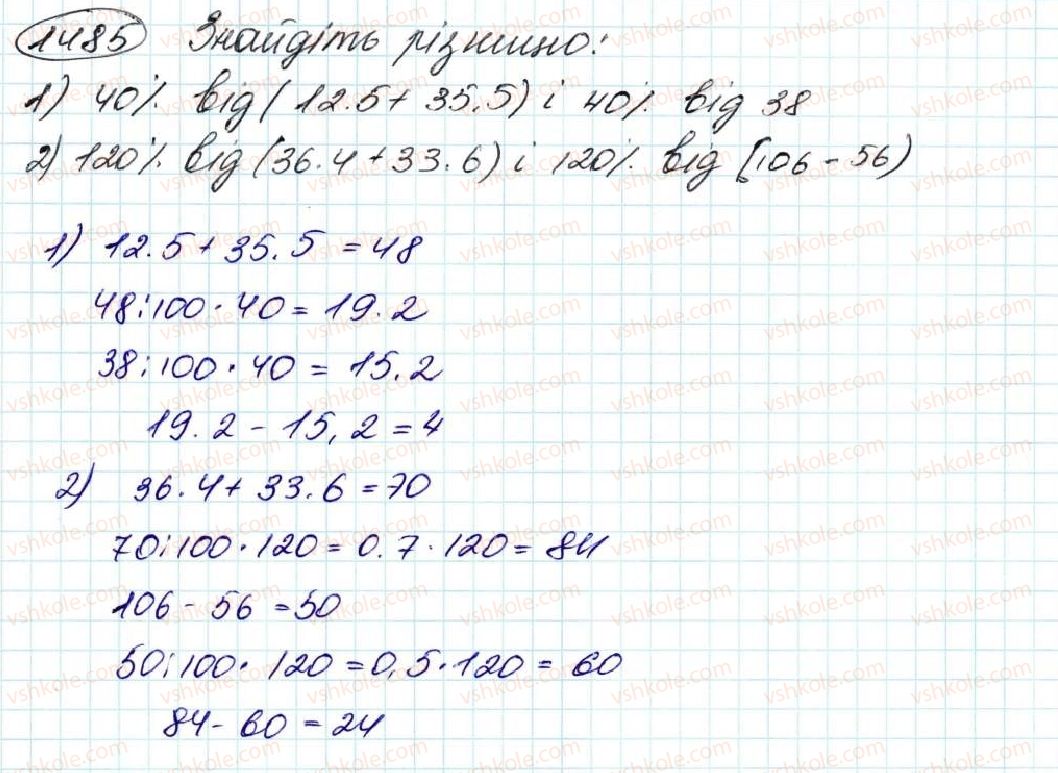 1485 Знайдіть різницю:
1) 40% від (12.5 + 35.5) і 40% від 38
2) 120% від (36.4 + 33.6) і 120% від (106 - 56)
1) 12.5 + 35.5 = 48
48:100·40 = 19.2
38:100·40 = 15.2
19.2 - 15,2 = 4
2) 36.4 + 33.6 = 70
70:100·120 = 0.7·120 = 84
106 - 56 = 50
50:100·120 = 0,5·120 = 60
84 - 60 = 24